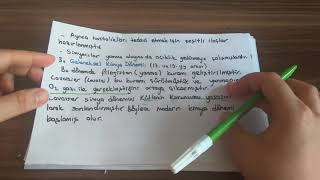 - Ayrıca hastalıkları tedavi etmek için çeşitli ilaçlar
hazırlanmıştır.
- Simyacılar yanma olayına da açıklık getirmeye çalışmışlardır.
3- Geleneksel Kimya Dönemi: (17. ve 19. yy arası)
Bu dönemde Filojiston (yanma) kuramı geliştirilmiştir.
Lavoisier bu kuramı çürütmüştür ve yanmanın
O₂ gazı ile gerçekleştiğini ortaya çıkarmıştır.
Lavoisier simya dönemini Kütlenin Korunumu yasasını
larak sonlandırmıştır. Böylece modern kimya dönemi
başlamış olur.